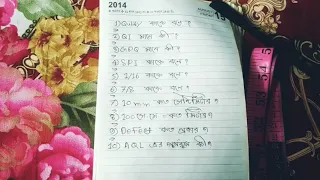 2014
1) Quality কাকে বলে ?
2) QI মানে কী ?
3) মানে কী ?
4) SPI কাকে বলে ?
5) 1/16 কাকে বলে ?
6) 7/8 কাকে বলে ?
7) 10 mm কত সেন্টিমিটার ?
8) 100 সে মি - কত মিটার ?
9) Defect কত প্রকার ?
10) AQL এর কী ?